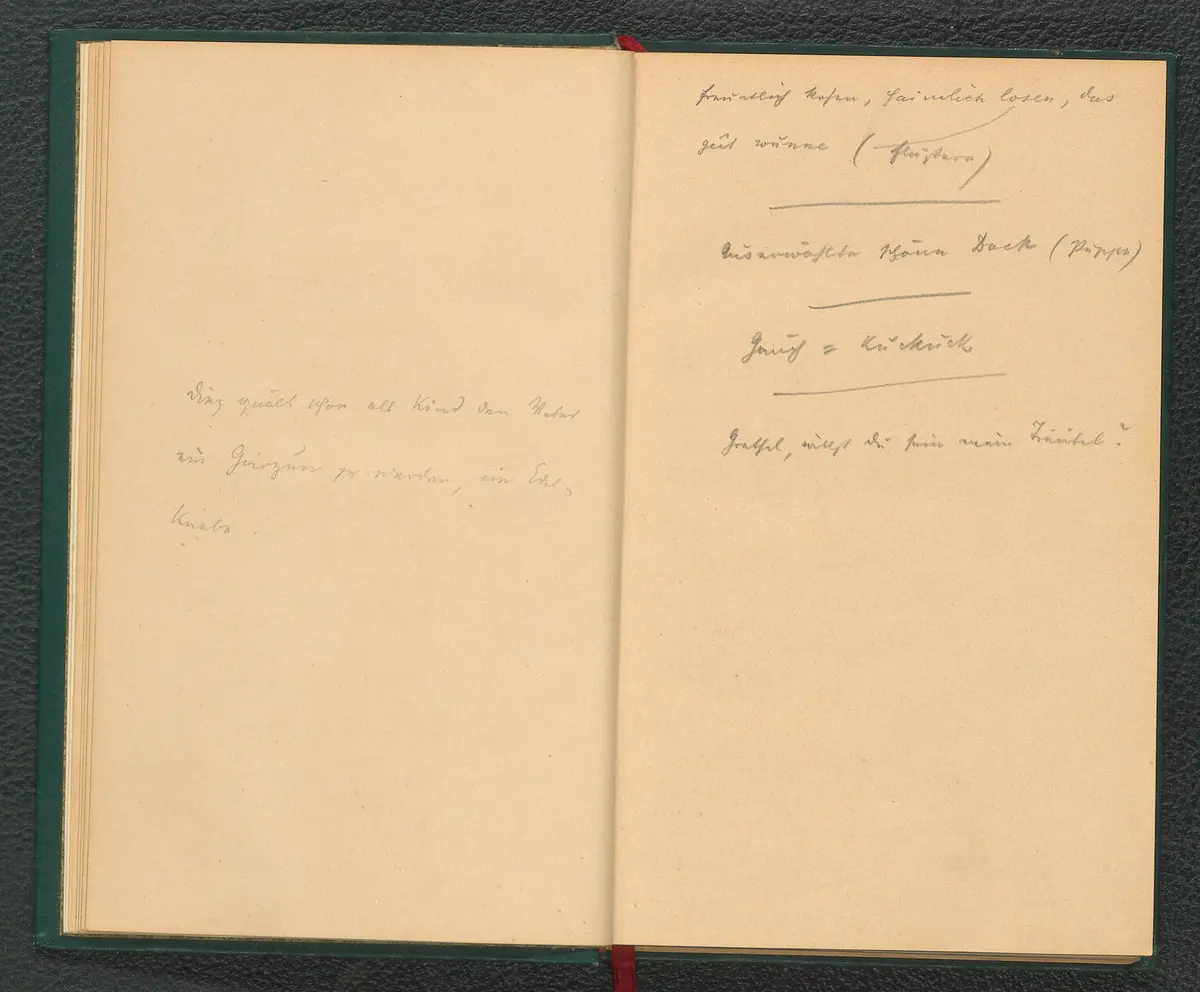 Diez quält schon als Kind den Vater
ein Garzun zu werden, ein Edel-
Knabe.
freuntlich kosen, haimlich losen, das
geit wunne (flüstern)
Auserwählte schöne Dock (Puppe)
Gauch = Kuckuck
Grethel, willst du sein mein Träutel?